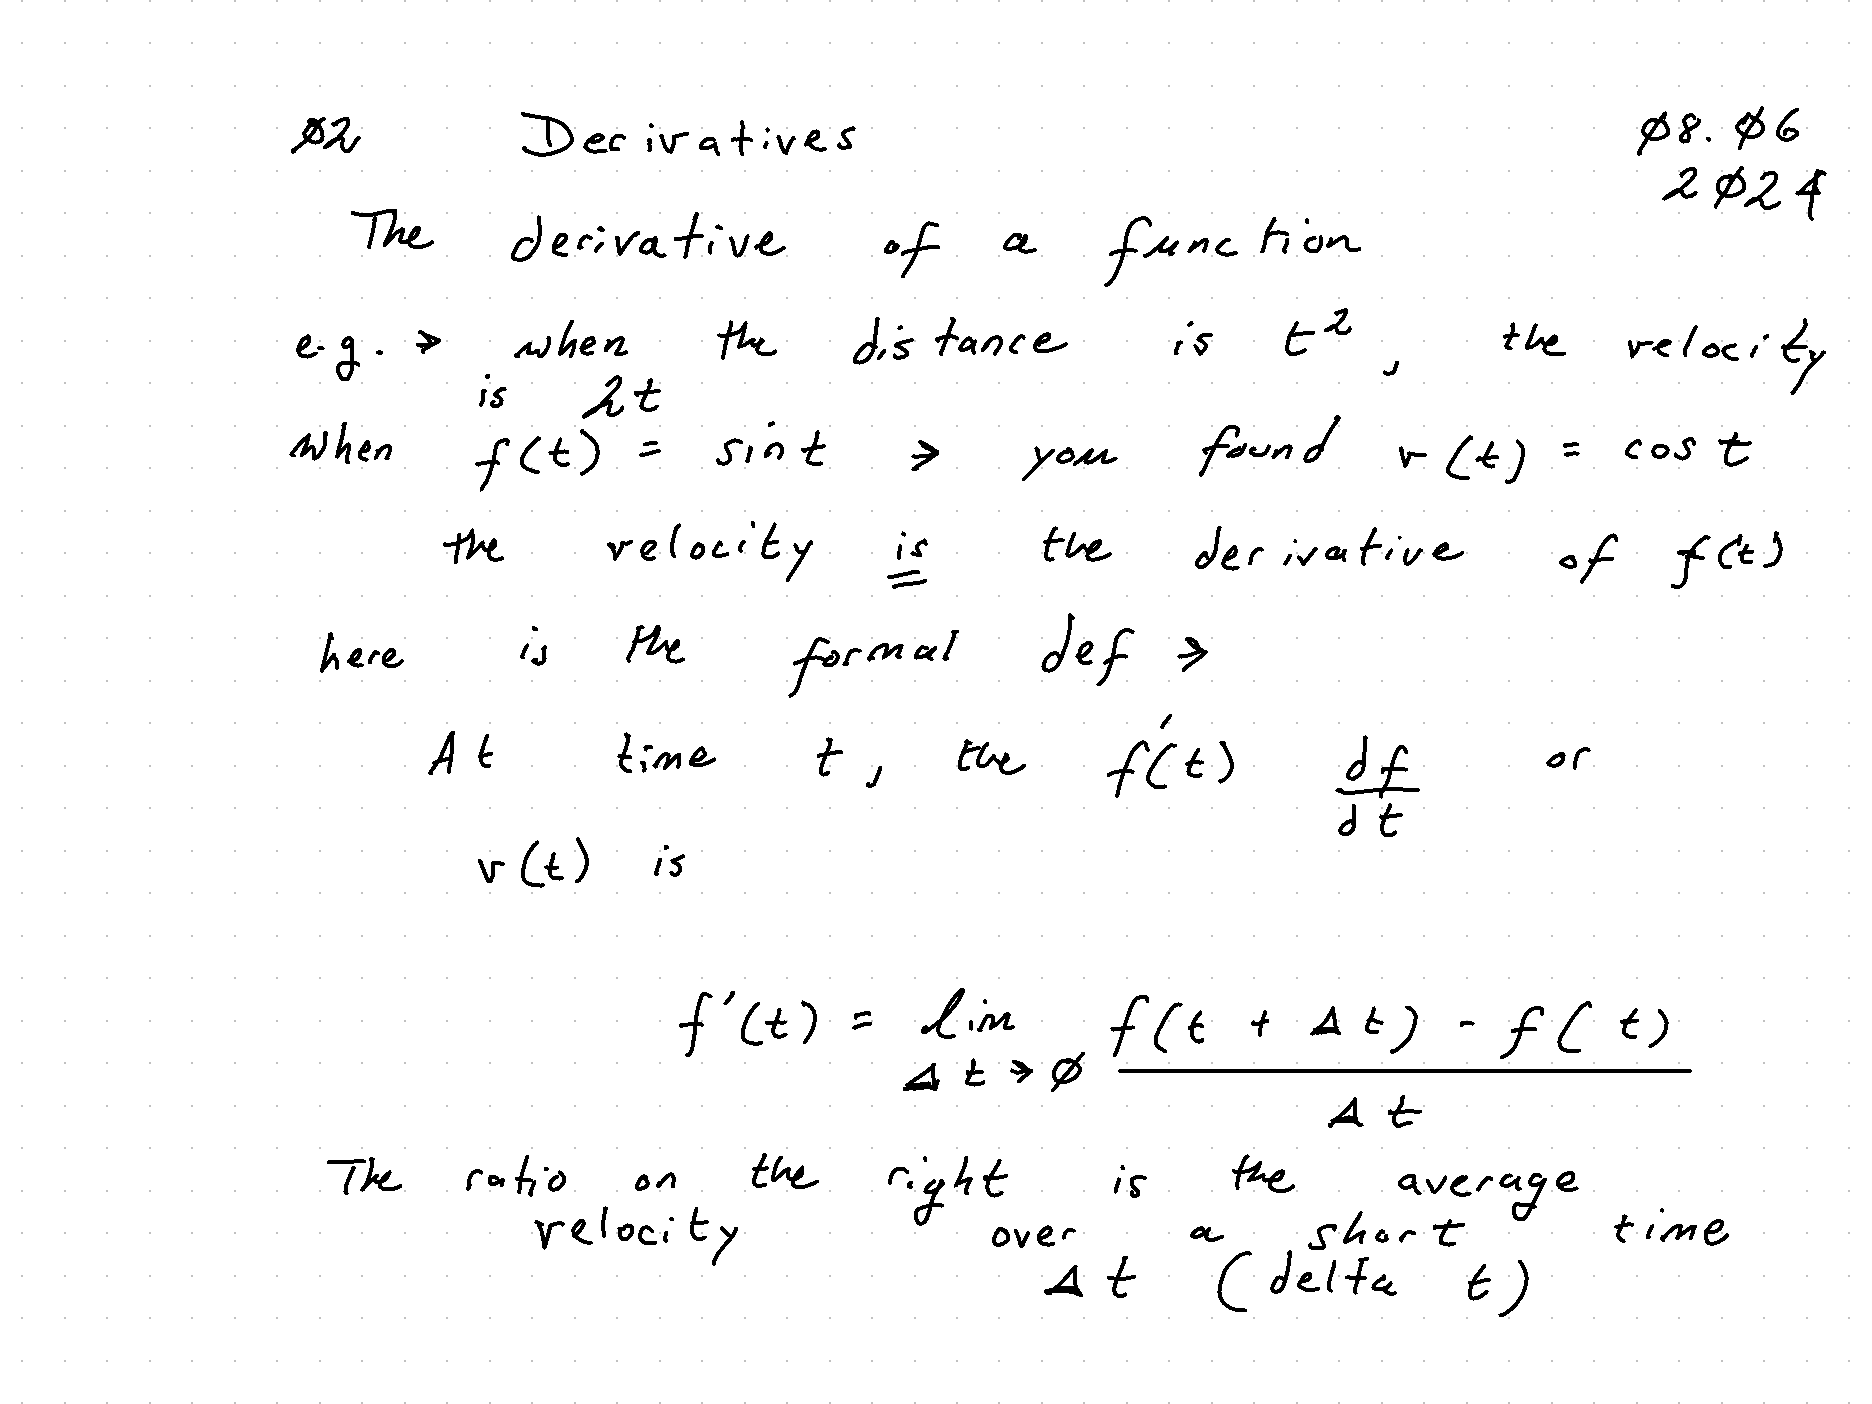 02 Derivatives 08.06
2024
The derivative of a function
e.g. → when the distance is t², the velocity
is 2t
when f(t) = sin t → you found v(t) = cos t
the velocity is the derivative of f(t)
here is the formal def →
At time t, the f'(t) df/dt or
v(t) is
f'(t) = lim Δt→0 (f(t + Δt) - f(t))/Δt
The ratio on the right is the average
velocity over a short time
Δt (delta t)